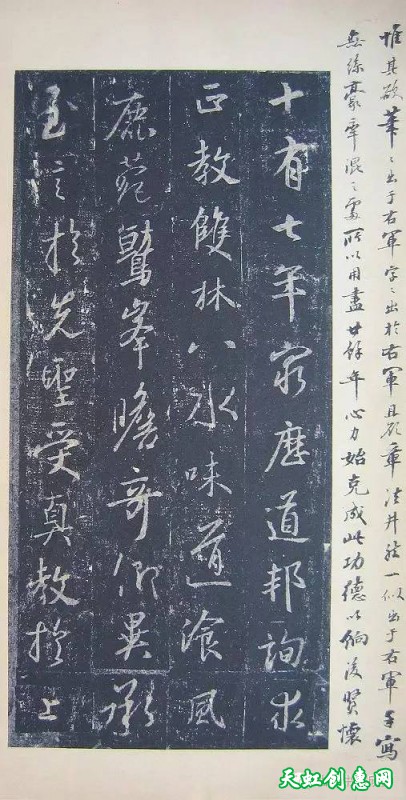 惟其欲筆〻出于右軍字〻出於右軍且欲章法井然一似出于右軍手寫
無絲豪牽混之處所以用盡廿餘年心力始克成此功德以餉後賢懷
十有七年窮歷道邦詢求
正教雙林八水味道飡風
鹿菀鷲峯瞻奇仰異承
至言於先聖受真教於上
天虹创惠网